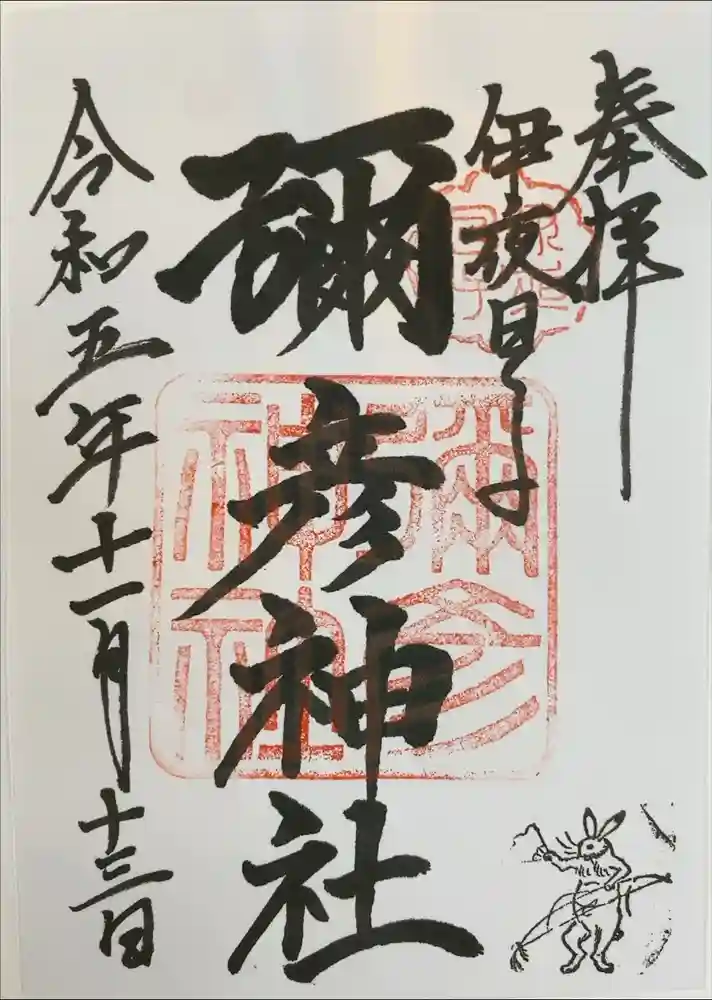 奉拝
伊夜日子
彌彦神社
令和五年十一月十三日
彌彦神社